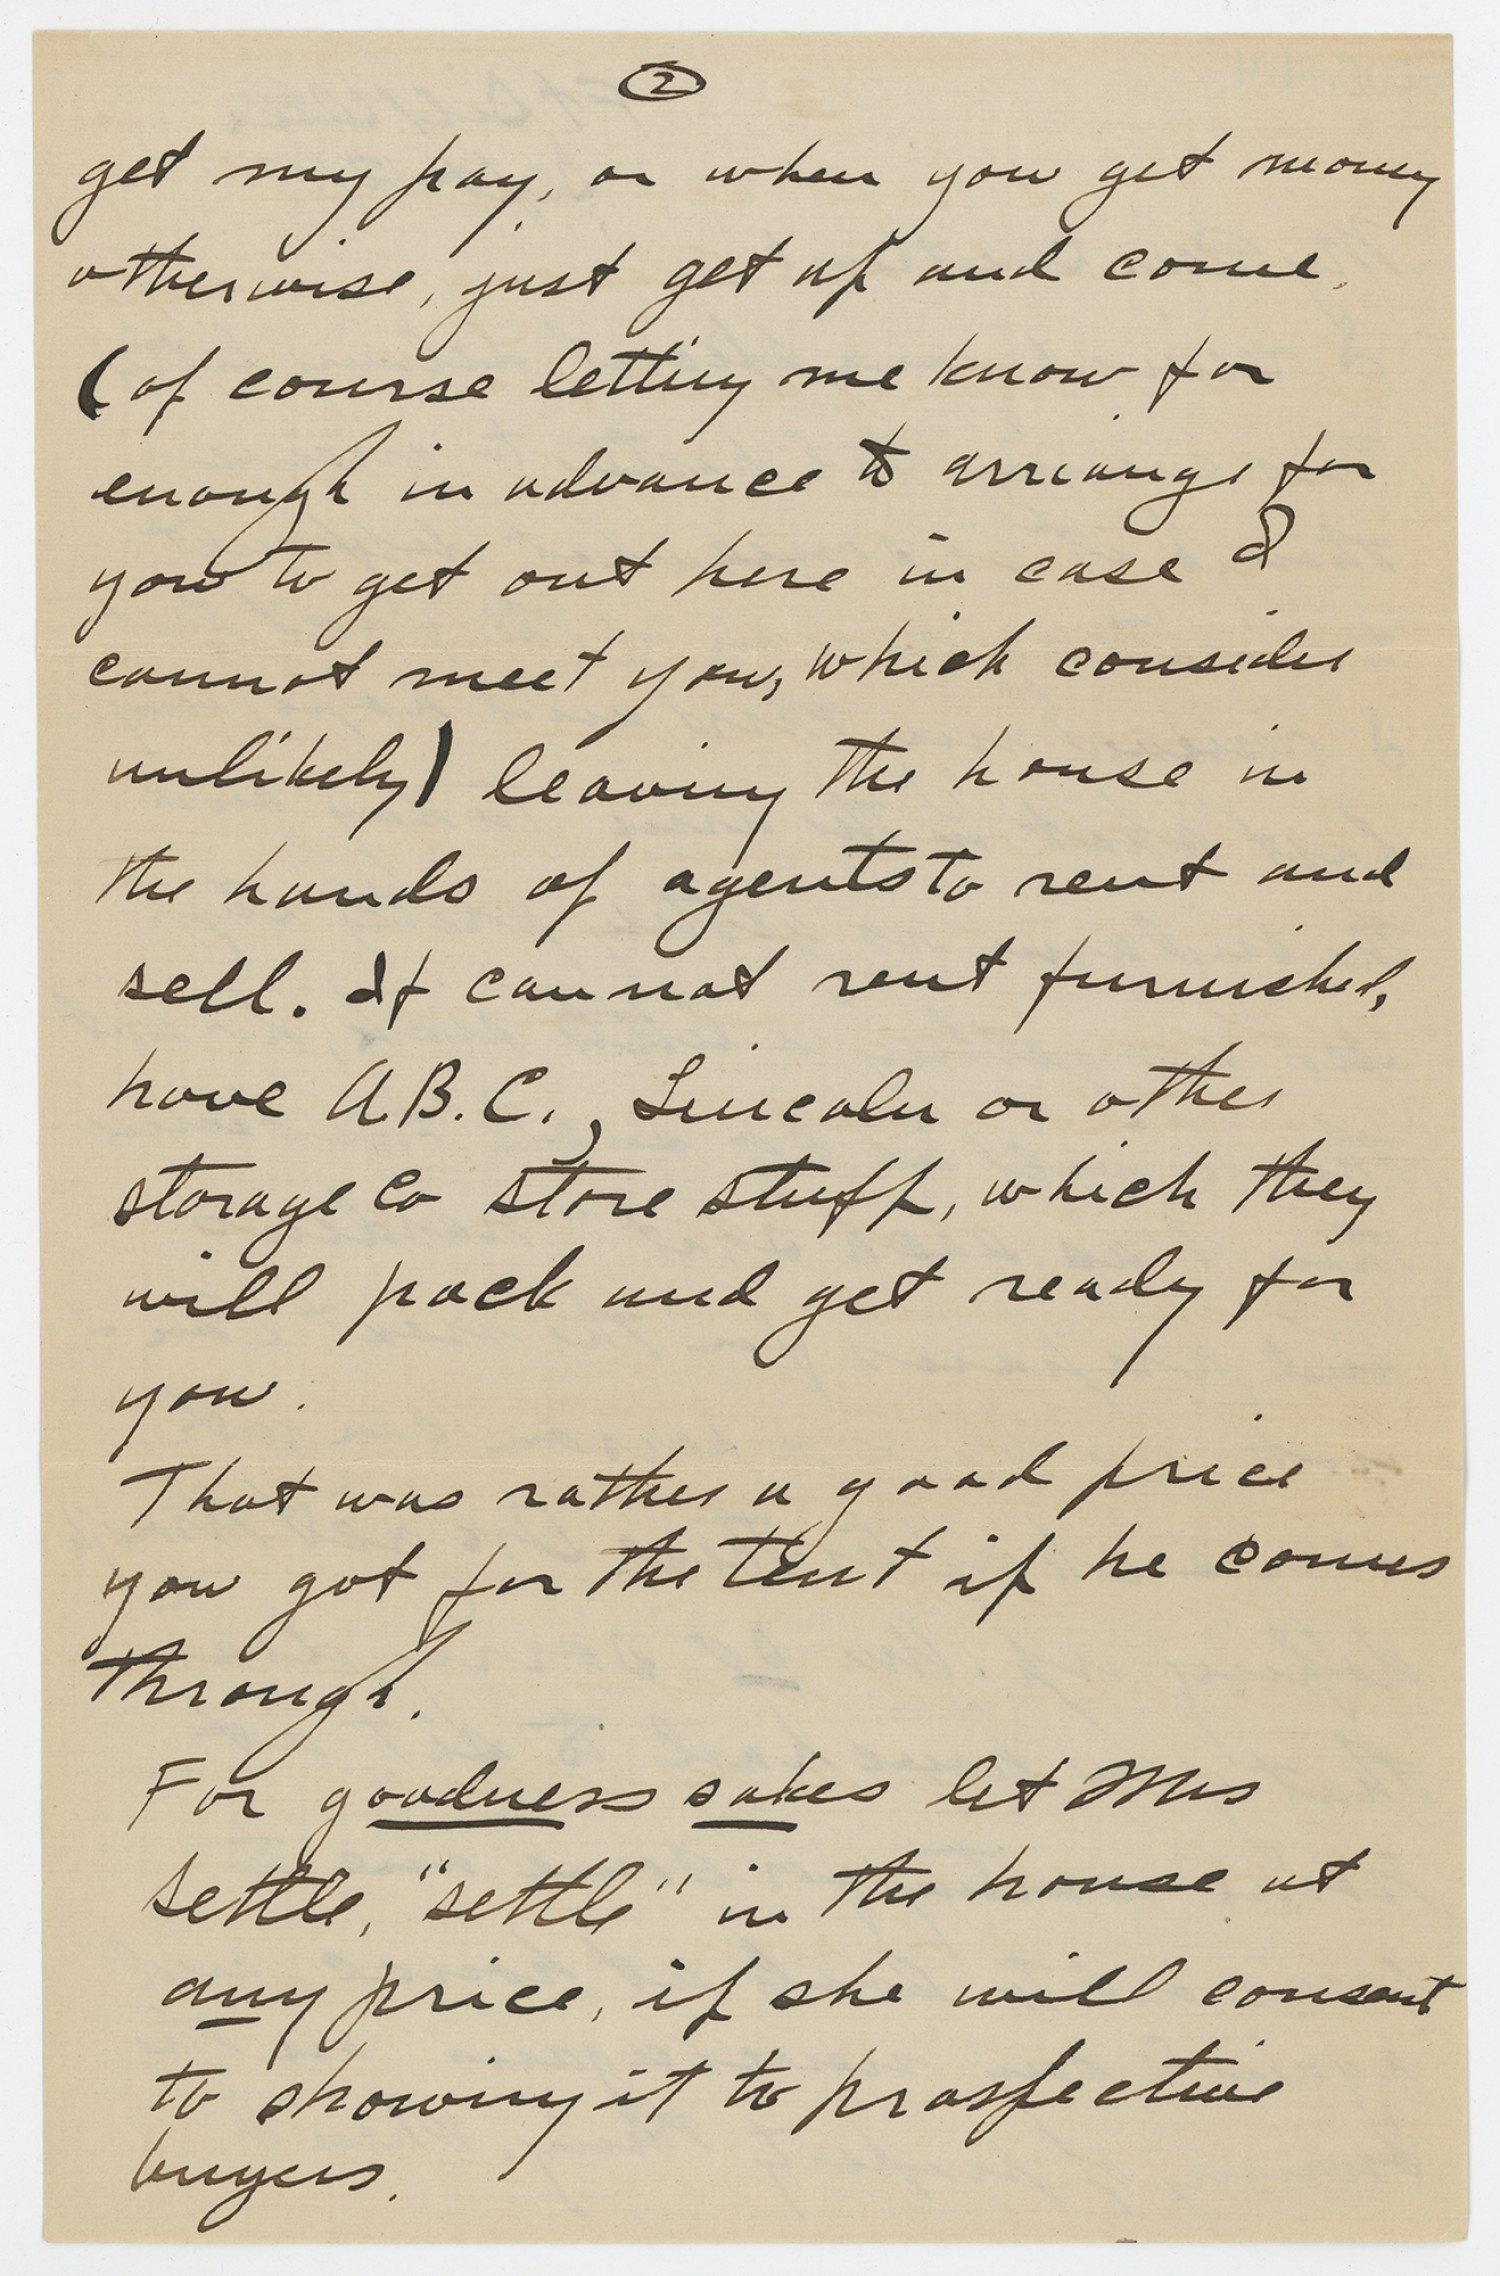 2
get my pay, or when you get money
otherwise, just get up and come.
(of course letting me know for
enough in advance to arrange for
you to get out here in case I
cannot meet you, which consider
unlikely) leaving the house in
the hands of agents to rent and
sell. If cannot rent furnished,
have A.B.C., Lincoln or other
storage co store stuff, which they
will pack and get ready for
you.
That was rather a good price
you got for the tent if he comes
through.
For goodness sakes let Mrs
Settle, "settle" in the house at
any price, if she will consent
to showing it to prospective
buyers.